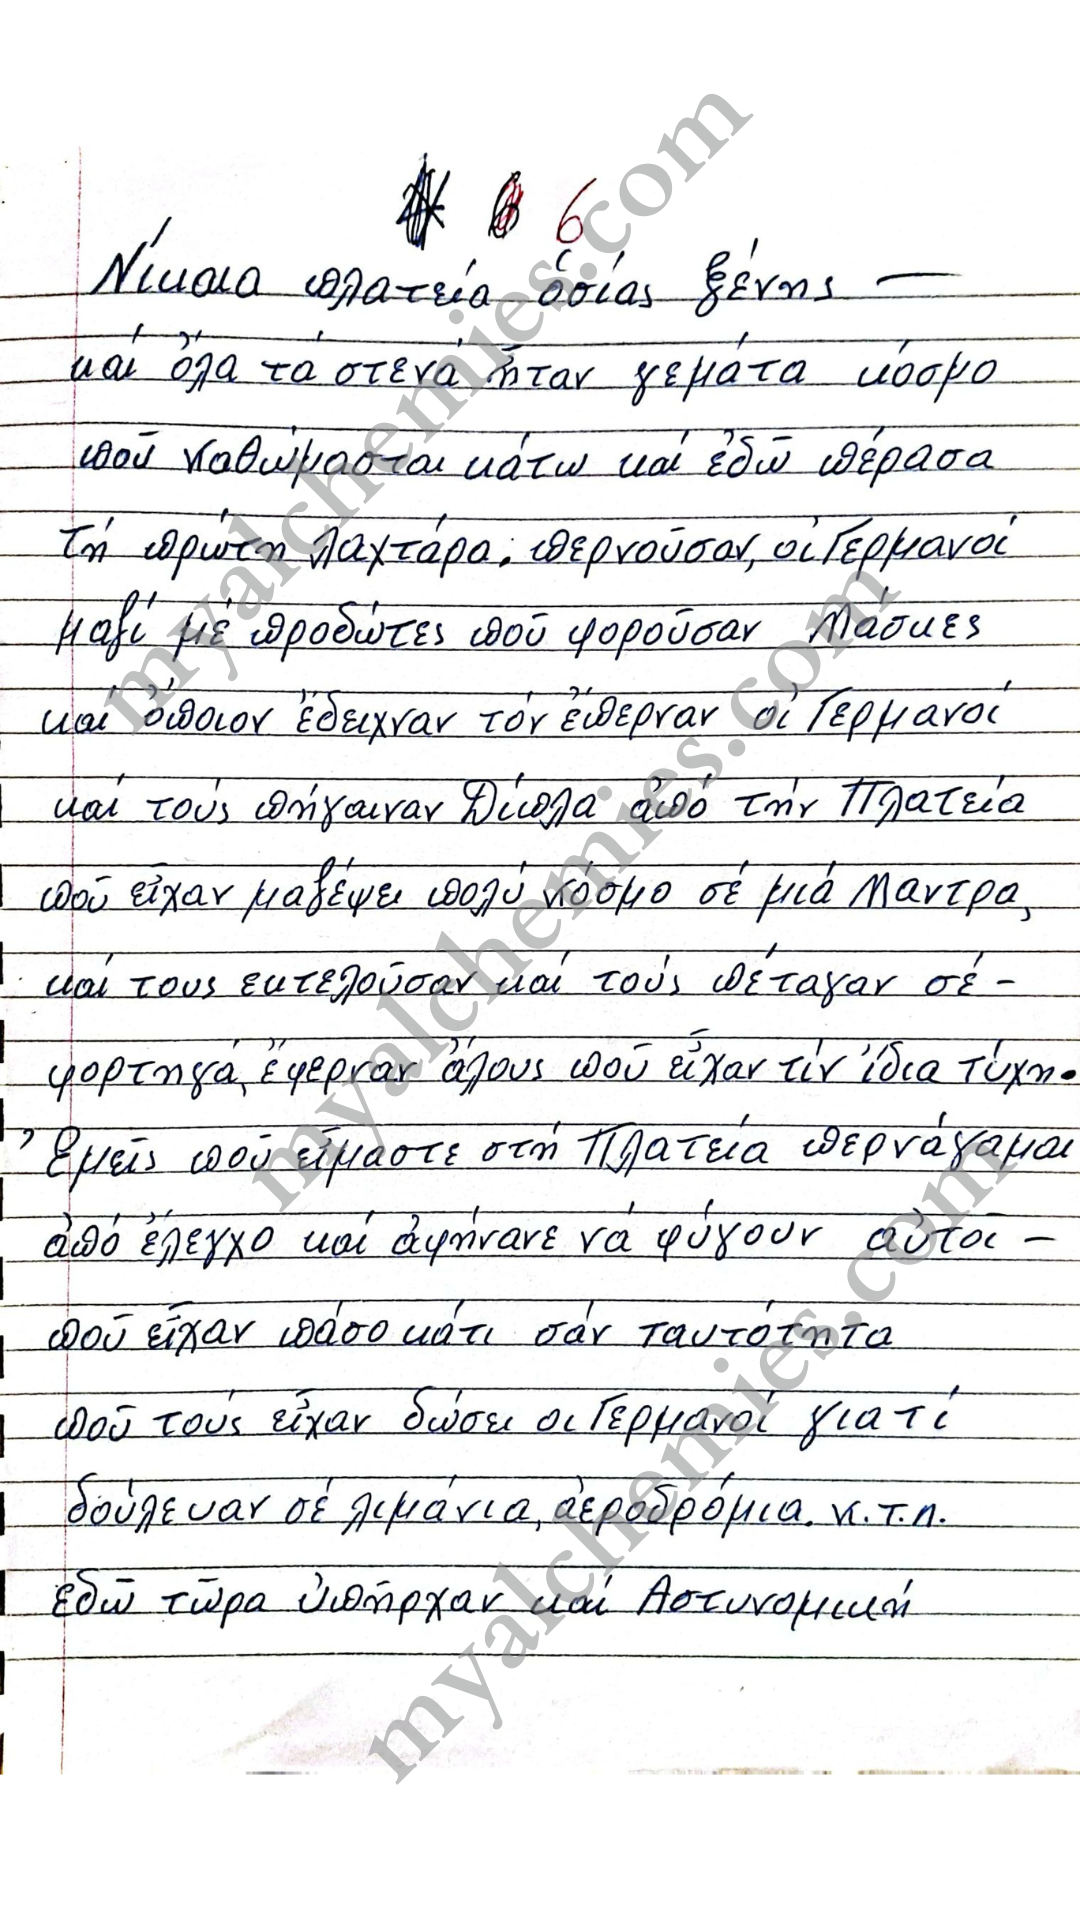 6
Νίκαια πλατεία ὁσίας ξένης —
καί ὅλα τά στενά ἦταν γεμάτα κόσμο
ποῦ καθώμασται κάτω καί ἐδῶ πέρασα
τή πρώτη λαχτάρα. περνοῦσαν, οἱ Γερμανοί
μαζί μέ προδώτες ποῦ φοροῦσαν Μάσκες
καί ὅποιον ἔδειχναν τόν ἔπερναν οἱ Γερμανοί
καί τούς πήγαιναν Δίπλα ἀπό τήν Πλατεία
ποῦ εἶχαν μαζέψει πολύ κόσμο σέ μιά Μαντρα,
καί τους εκτελοῦσαν καί τούς πέταγαν σέ -
φορτηγά, ἔφερναν ἄλους ποῦ εἶχαν τίν ἴδια τύχη.
Ἐμεῖς ποῦ εἴμαστε στή Πλατεία περνάγαμαι
ἀπό ἔλεγχο καί ἀφήνανε νά φύγουν αὐτοι —
ποῦ εἶχαν πάσο κάτι σάν ταυτότητα
ποῦ τούς εἶχαν δώσει οι Γερμανοί γιατί
δούλευαν σέ λιμάνια, ἀεροδρόμια. κ.τ.λ.
εδῶ τῶρα ὑπῆρχαν καί Αστυνομική
myalchemies.com
myalchemies.com
myalchemies.com